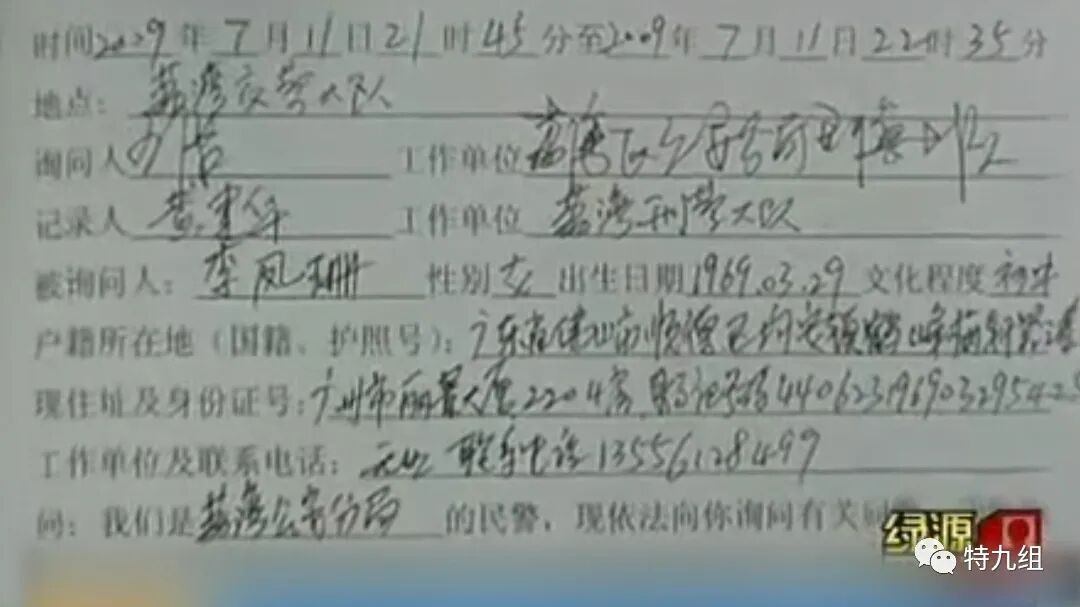 时间2009年7月11日21时45分至2009年7月11日22时35分
地点：荔湾交警大队
询问人 工作单位 荔湾区公安分局刑侦大队
记录人 黄建华 工作单位 荔湾刑警大队
被询问人：李凤珊 性别 女 出生日期1969.03.29 文化程度 初中
户籍所在地（国籍、护照号）：广东省佛山市顺德区均安镇鹤峰
现住址及身份证号：广州市丽景大厦2204房 身份证号码4406231969032954
工作单位及联系电话：无业 联系电话13556128499
问：我们是荔湾公安分局 的民警，现依法向你询问有关
绿源
特九组